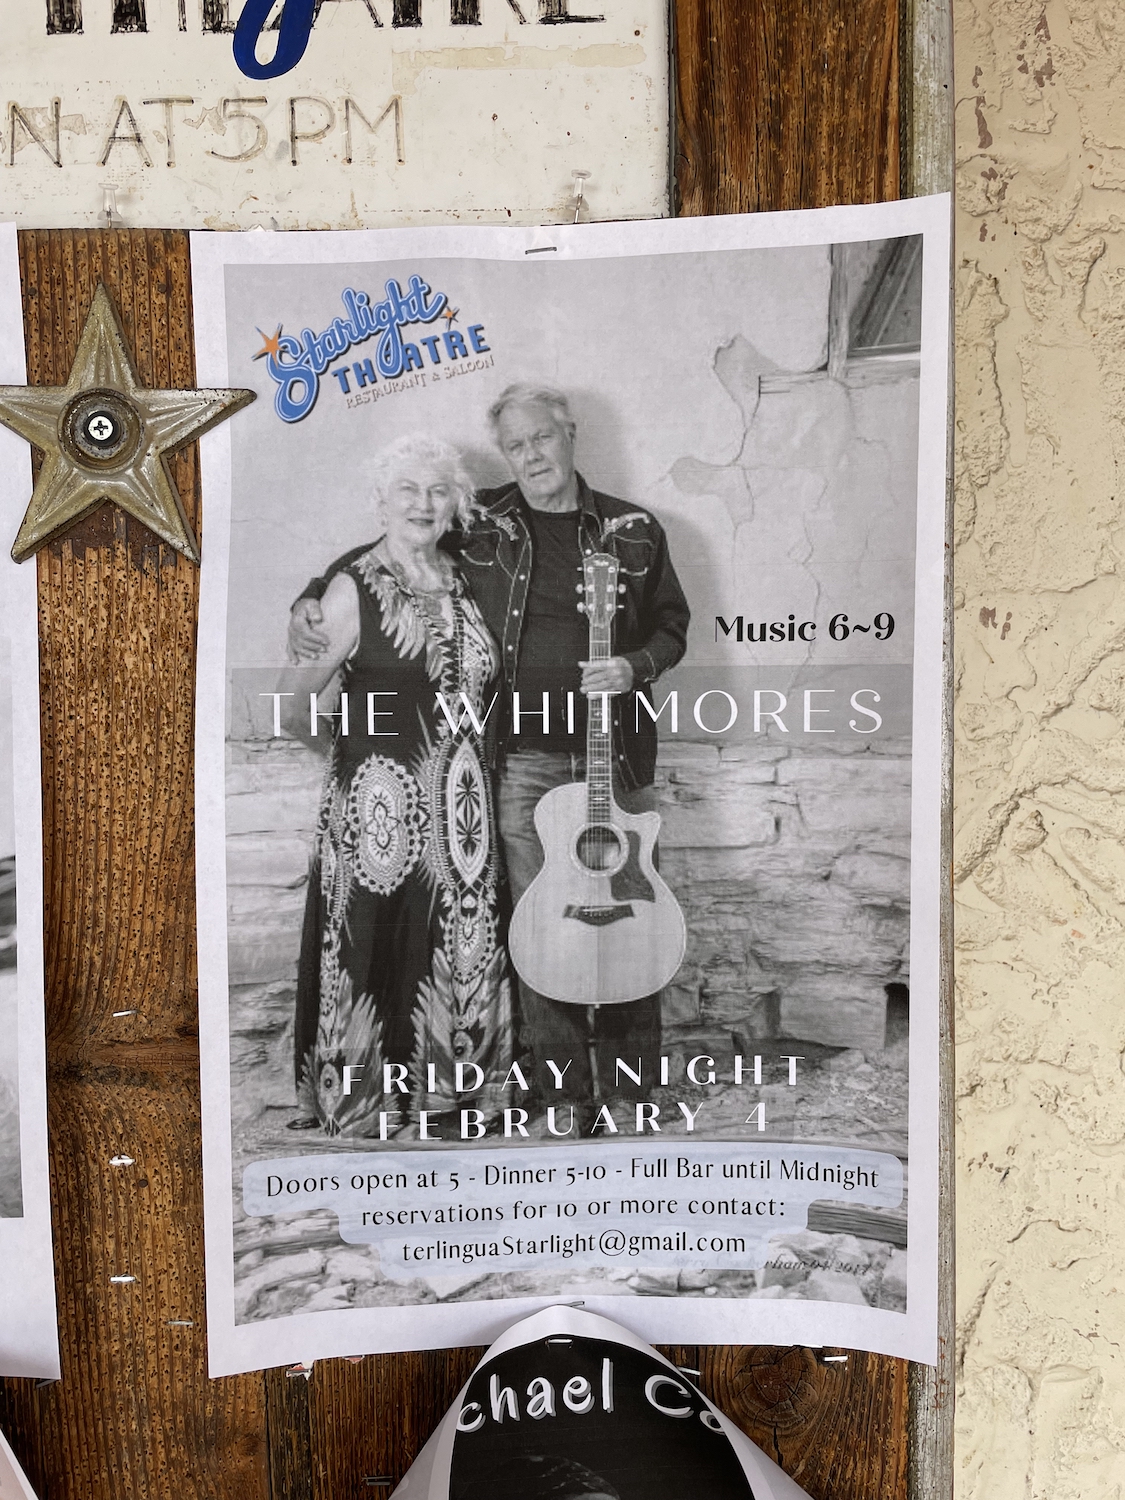 N AT 5PM
Starlight
THEATRE
RESTAURANT & SALOON
Taylor
Music 6~9
THE WHITMORES
FRIDAY NIGHT
FEBRUARY 4
Doors open at 5 - Dinner 5-10 - Full Bar until Midnight
reservations for 10 or more contact:
terlinguaStarlight@gmail.com
chael C